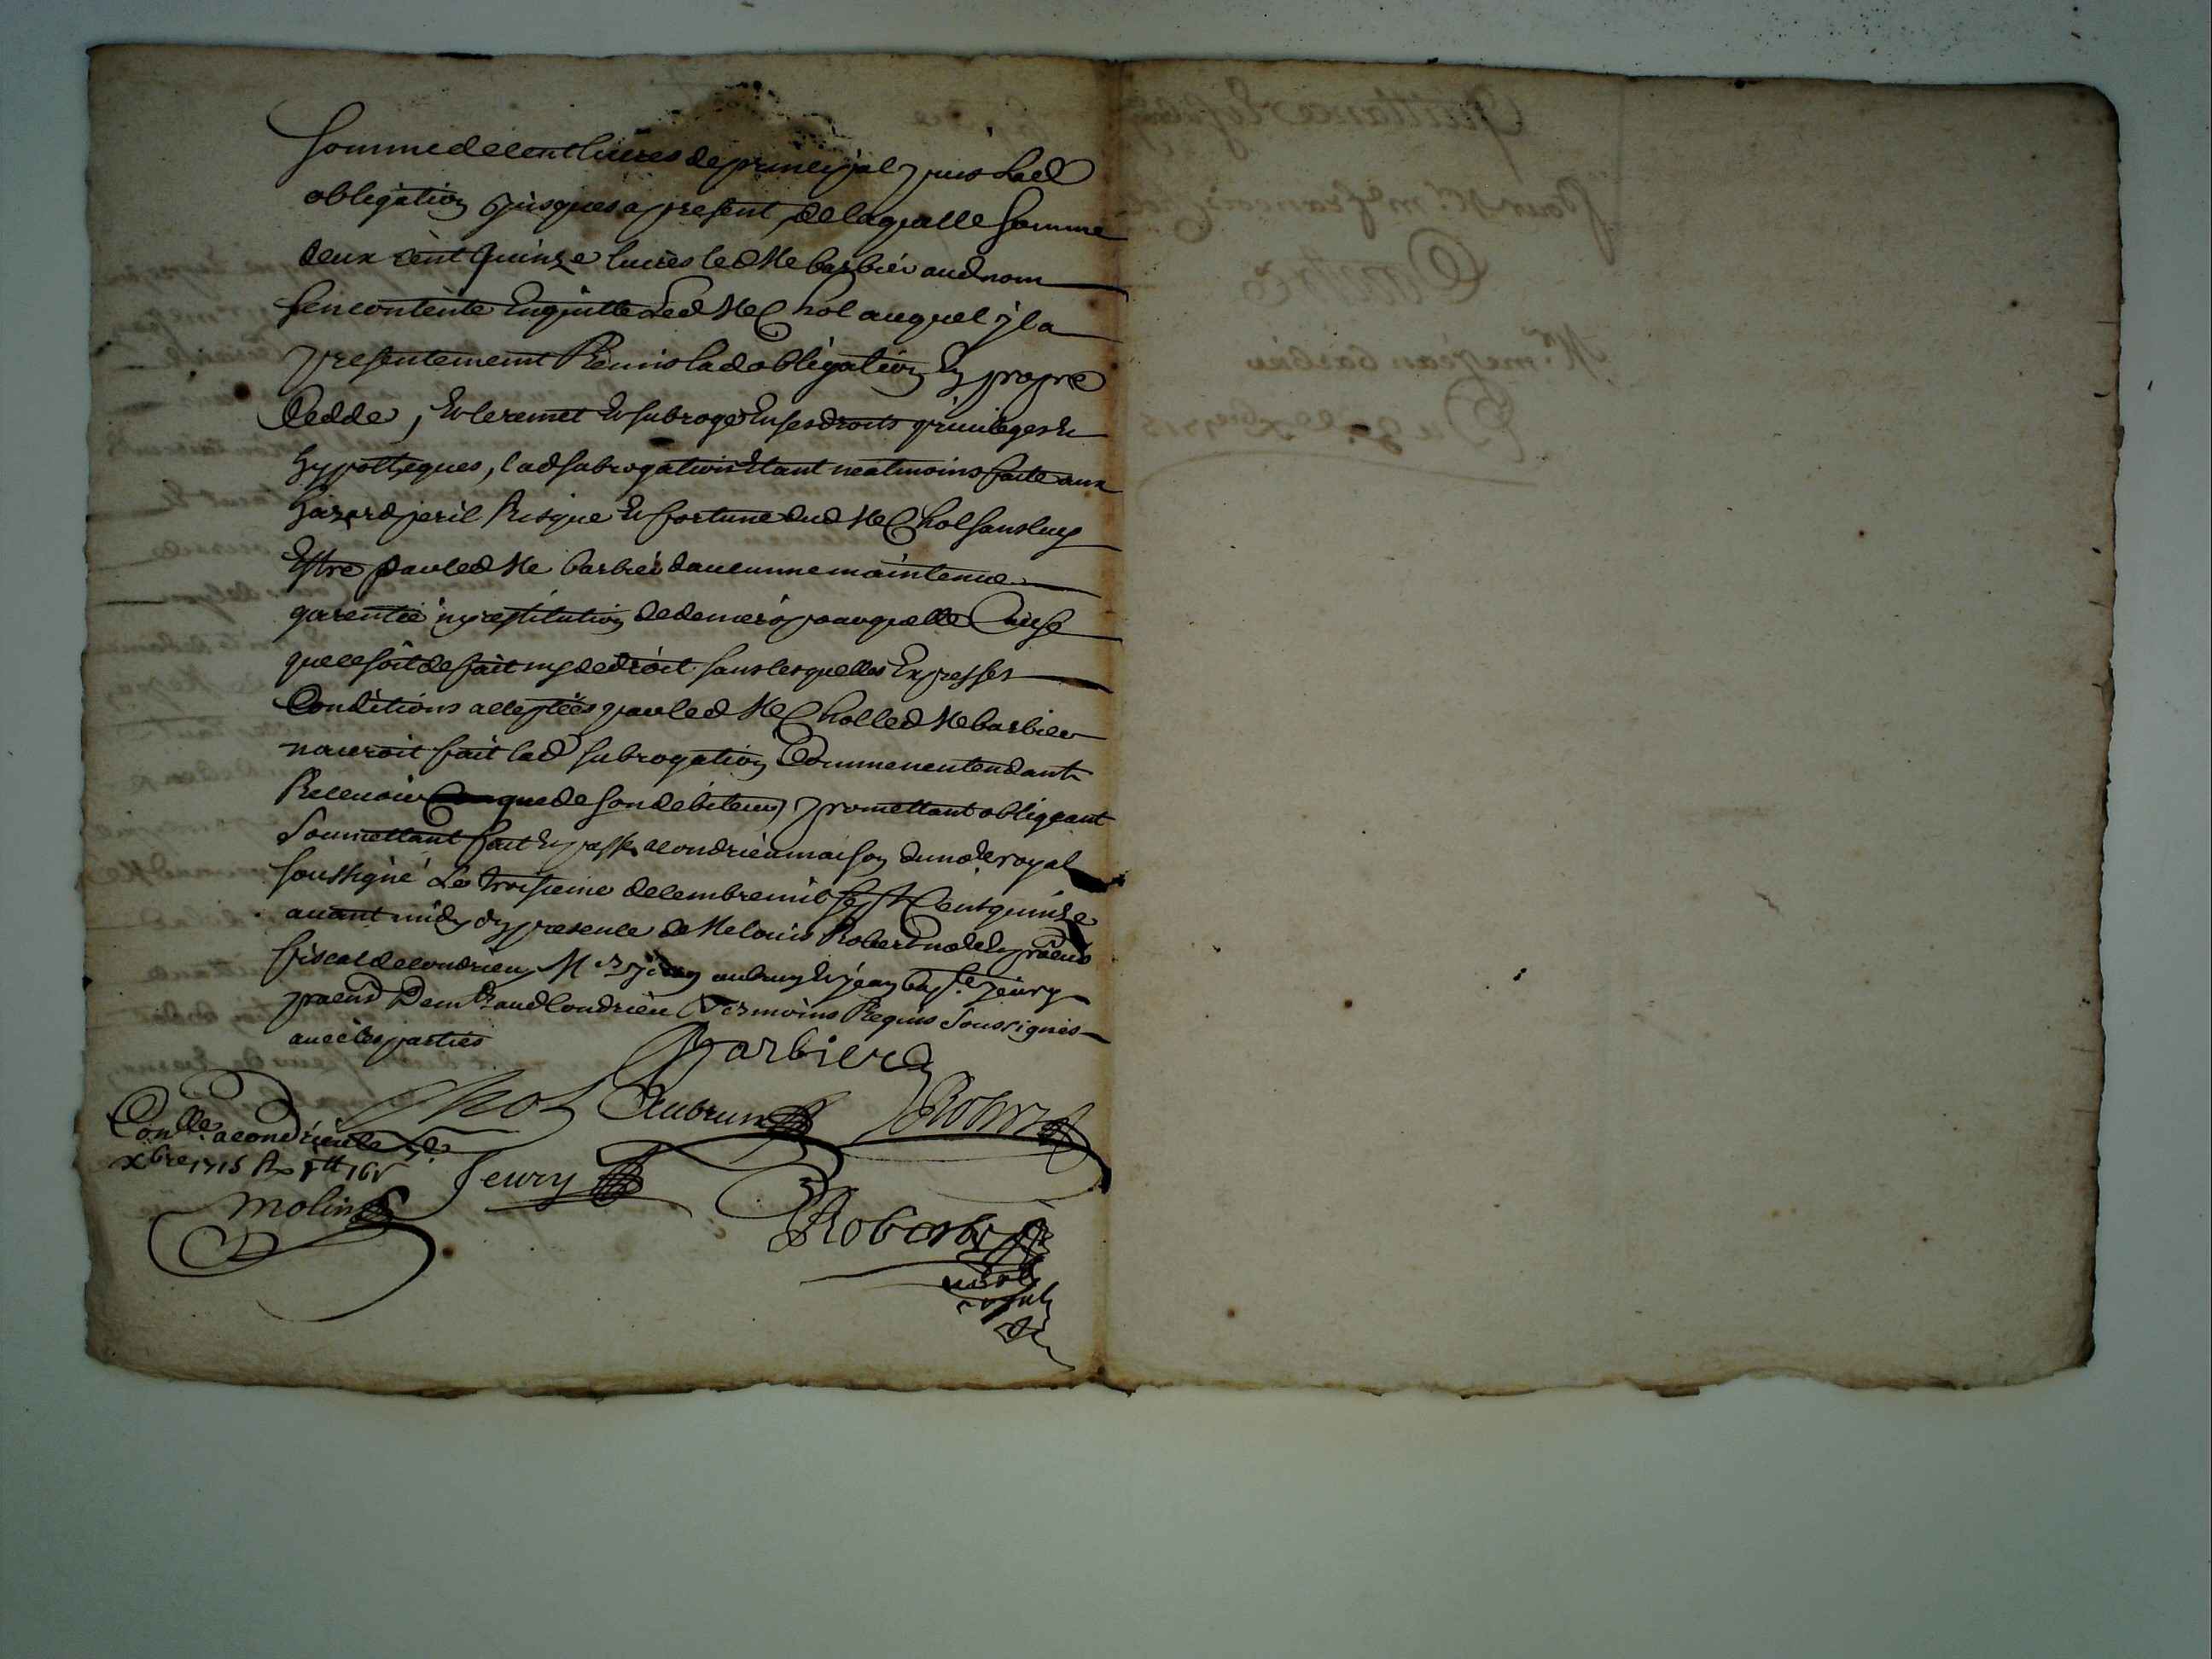 Somme de cent livres de principal puis lad
obligation jusques a present, de laquelle somme
deux cent quinze livres led Me barbier aud nom
sen contente En quitte Led Me Chol auquel il a
presentement Remis lad obligation En propre
Cedde, Et le remet Et subroge En ses droits privileges Et
hypotheques, lad subrogation Etant neatmoins faite aux
hazard peril Risque Et fortune dud Me Chol sans luy
Estre par led Me barbier daucunne maintenue
garentie ny restitution de deniers pour quelle Cause
que ce soit de fait ny de droit sans lesquelles Expresses
Conditions acceptées par led Me Chol led Me barbier
nauroit fait lad subrogation Comme nentendant
Recevoir que de son debiteur, promettant obligeant
Soumettant fait Et passé a condrieu maison du no.re royal
soussigné Le troisieme decembre mil sept Cent quinze
avant midy En presence de Me louis Robert no.re Et pro.eur
fiscal de condrieu, Mrs aubrun Et jean bap.te jeury
pra.ens Dem.ts aud Condrieu tesmoins Requis Soussignés
avec les parties
Barbier
Chol Aubrun Robert
Con.lle a condrieu le
xbre 1715 R
Jeury
Molin
Robert
no.re
royal
Quittance
Pour Sr. me francois
Contre
Mr. me jean barbier
Du 3e xbre 1715